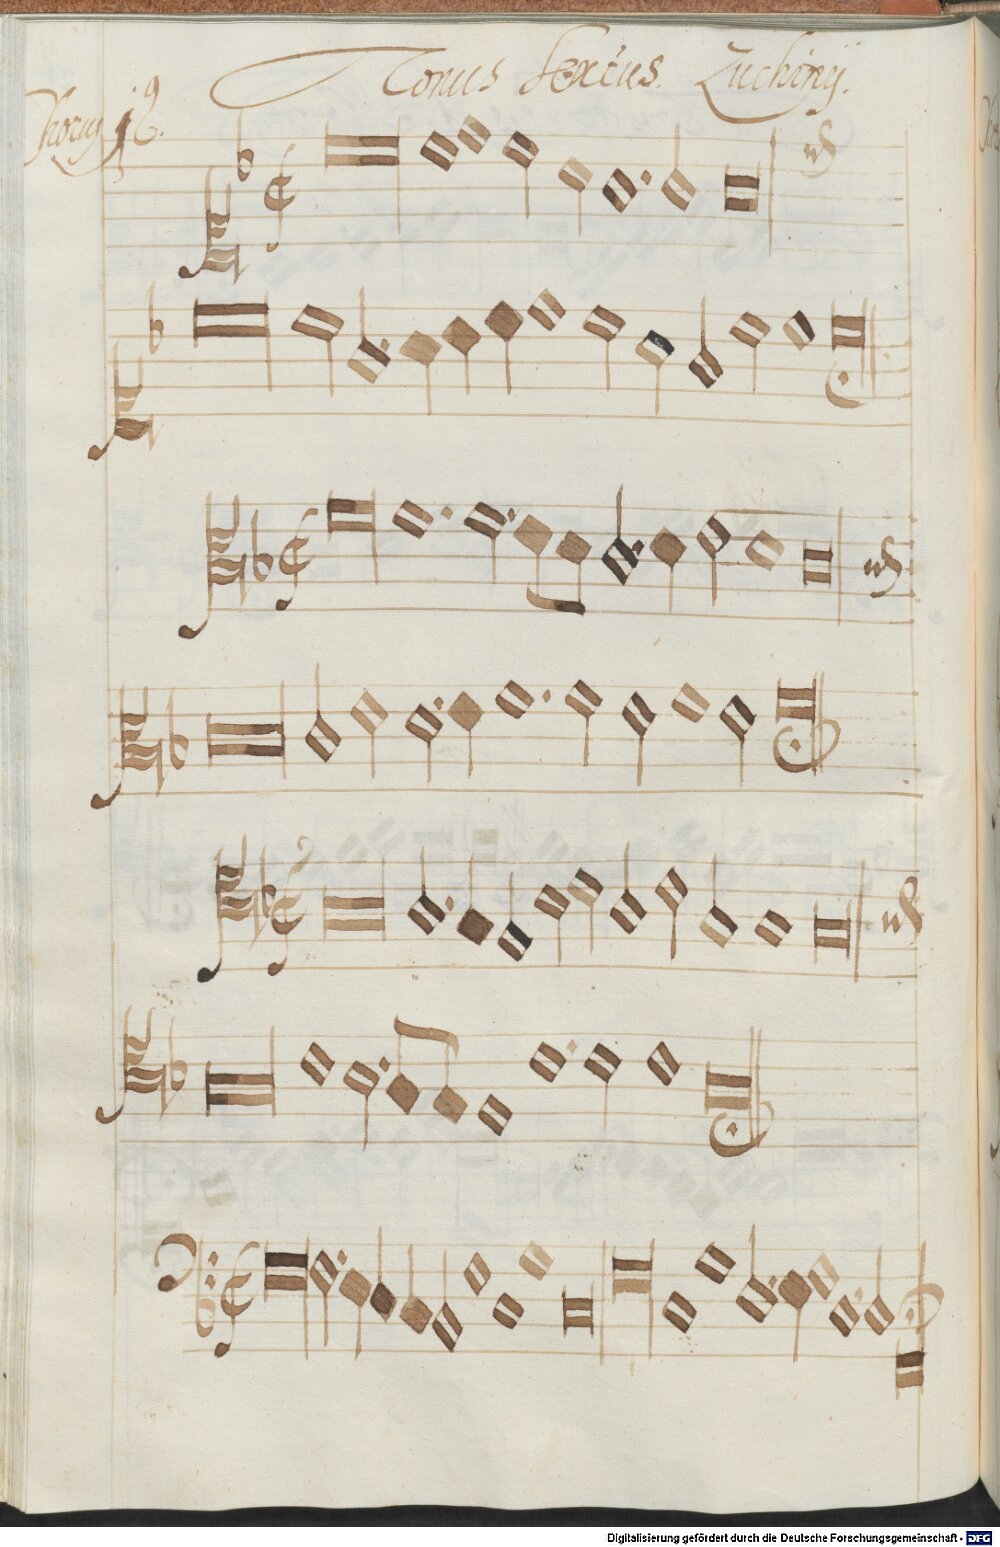 Tonus Sextus. Zuchinij.
Chorus 1us.
Digitalisierung gefördert durch die Deutsche Forschungsgemeinschaft - DFG